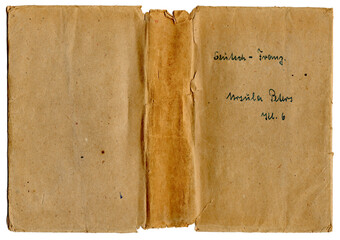 Deutsch - Franz.
Ursula Peters
Kl. 6